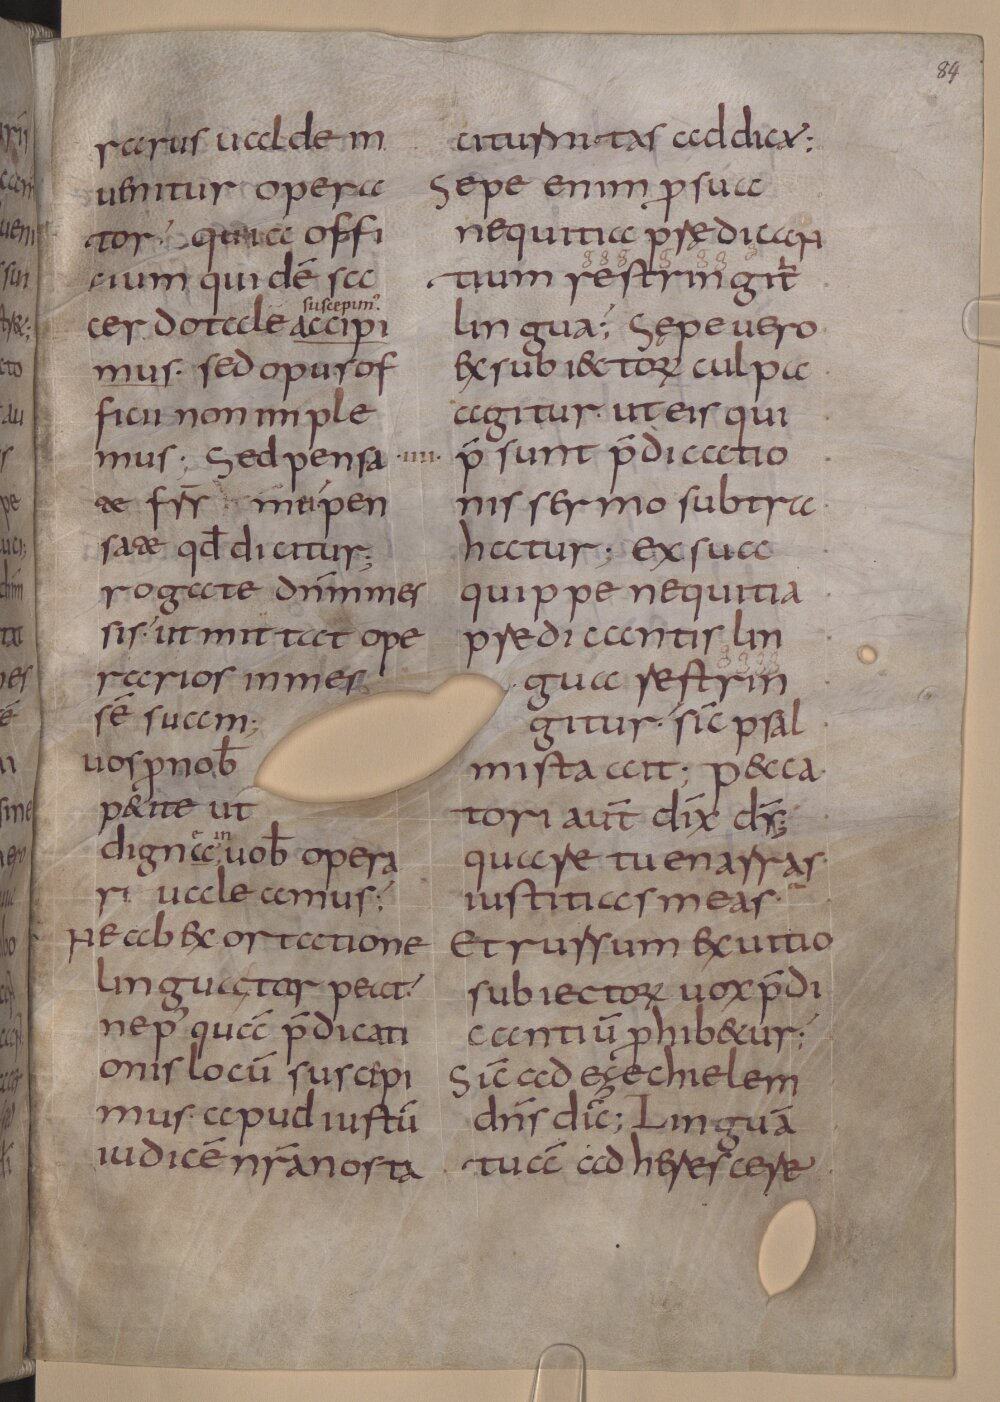 84
rarus ualde in
uenitur opera
tor; quia offi
cium quidē sa
cer dotale accipi
suscepim᷒
mus. sed opus of
ficii non imple
mus; Sed pensa
te frs̄ mei pen
sate qđ dicitur;
rogate dn̄m mes
sis. ut mittat ope
rarios in mes
sē suam;
uos ꝓ nob̄
petite ut
digna uob̄ opera
e in
ri ualeamus;
Ne ab exortatione
lingua torpeat;
ne pꝰquā p̄dicati
onis locū suscepi
mus. apud iustū
iudicē nr̄a nos ta
citurnitas addicat;
Sepe enim ꝓ sua
nequitia predican
tium restringit̄
lingua; Sepe uero
ex subiectoꝝ culpa
agitur. ut eis qui
·IIII·
p̄sunt p̄dicatio
nis sermo subtra
hatur; ex sua
quippe nequitia
predicantis lin
gua restrin
gitur. sic̄ psal
mista ait; Pecca
tori aut̄ dix̄ ds̄;
quare tu enarras
iustitias meas.
Et rursum ex uitio
subiectoꝝ uox p̄di
cantiū ꝓhibetur;
Sic̄ ad ezechielem
dn̄s dic̄; Linguā
tuā adherescere